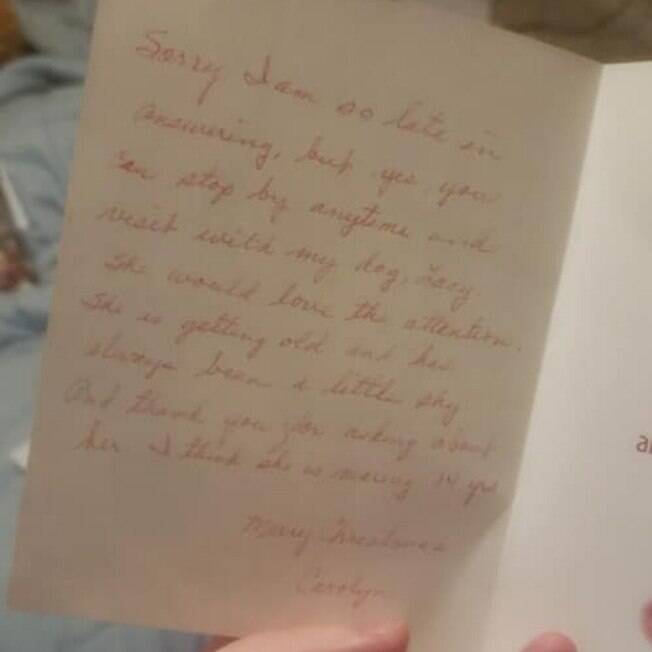 Sorry I am so late in
answering, but yes you
can stop by anytime and
visit with my dog, Lacy
She would love the attention.
She is getting old and has
always been a little shy
And thank you for asking about
her. I think she is nearing 14 yrs
Merry Christmas
Carolyn